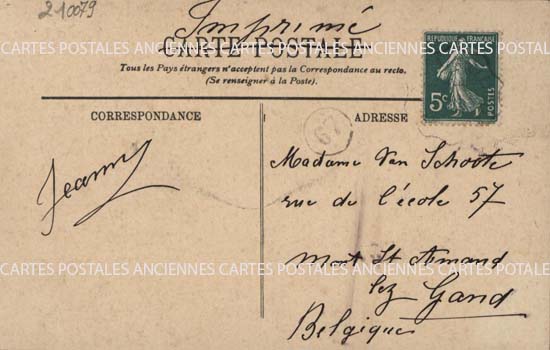 210079
Imprimé
CARTE POSTALE
Tous les Pays étrangers n'acceptent pas la Correspondance au recto.
(Se renseigner à la Poste).
REPUBLIQUE FRANÇAISE
5c
POSTES
CORRESPONDANCE
ADRESSE
67
Jeanny
Madame Van Schoote
rue de l'école 57
Mont St Amand
lez Gand
Belgique
CARTES POSTALES ANCIENNES CARTES POSTALES ANCIENNES CARTES POSTALES
CARTES POSTALES ANCIENNES CARTES POSTALES ANCIENNES CARTES POSTALES